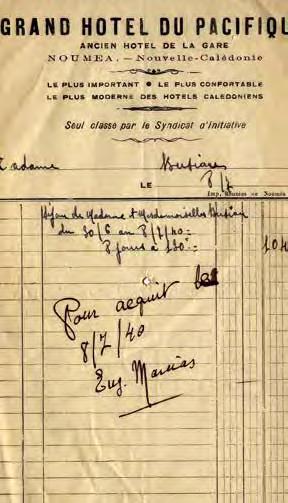 GRAND HOTEL DU PACIFIQU
ANCIEN HOTEL DE LA GARE
NOUMEA. — Nouvelle-Calédonie
LE PLUS IMPORTANT • LE PLUS CONFORTABLE
LE PLUS MODERNE DES HOTELS CALEDONIENS
Seul classé par le Syndicat d'Initiative
adame
LE 8/7
Imp. Réunies de Nouméa
de Madame et Mesdemoiselles
du 30/6 au 8/7/40
8 jours à 130 104
Pour acquit
8/7/40
Eug.